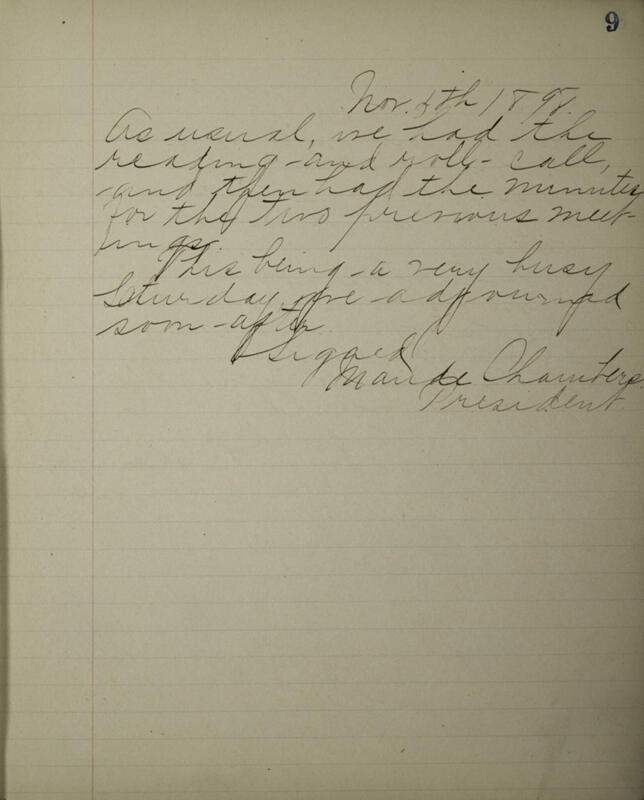 9
Nov. 6th 1897.
As usual, we had the
reading and roll-call,
and then had the minutes
for the two previous meet-
ings.
This being a very busy
Saturday, we adjourned
soon after.
Signed
Maude Chambers.
President.